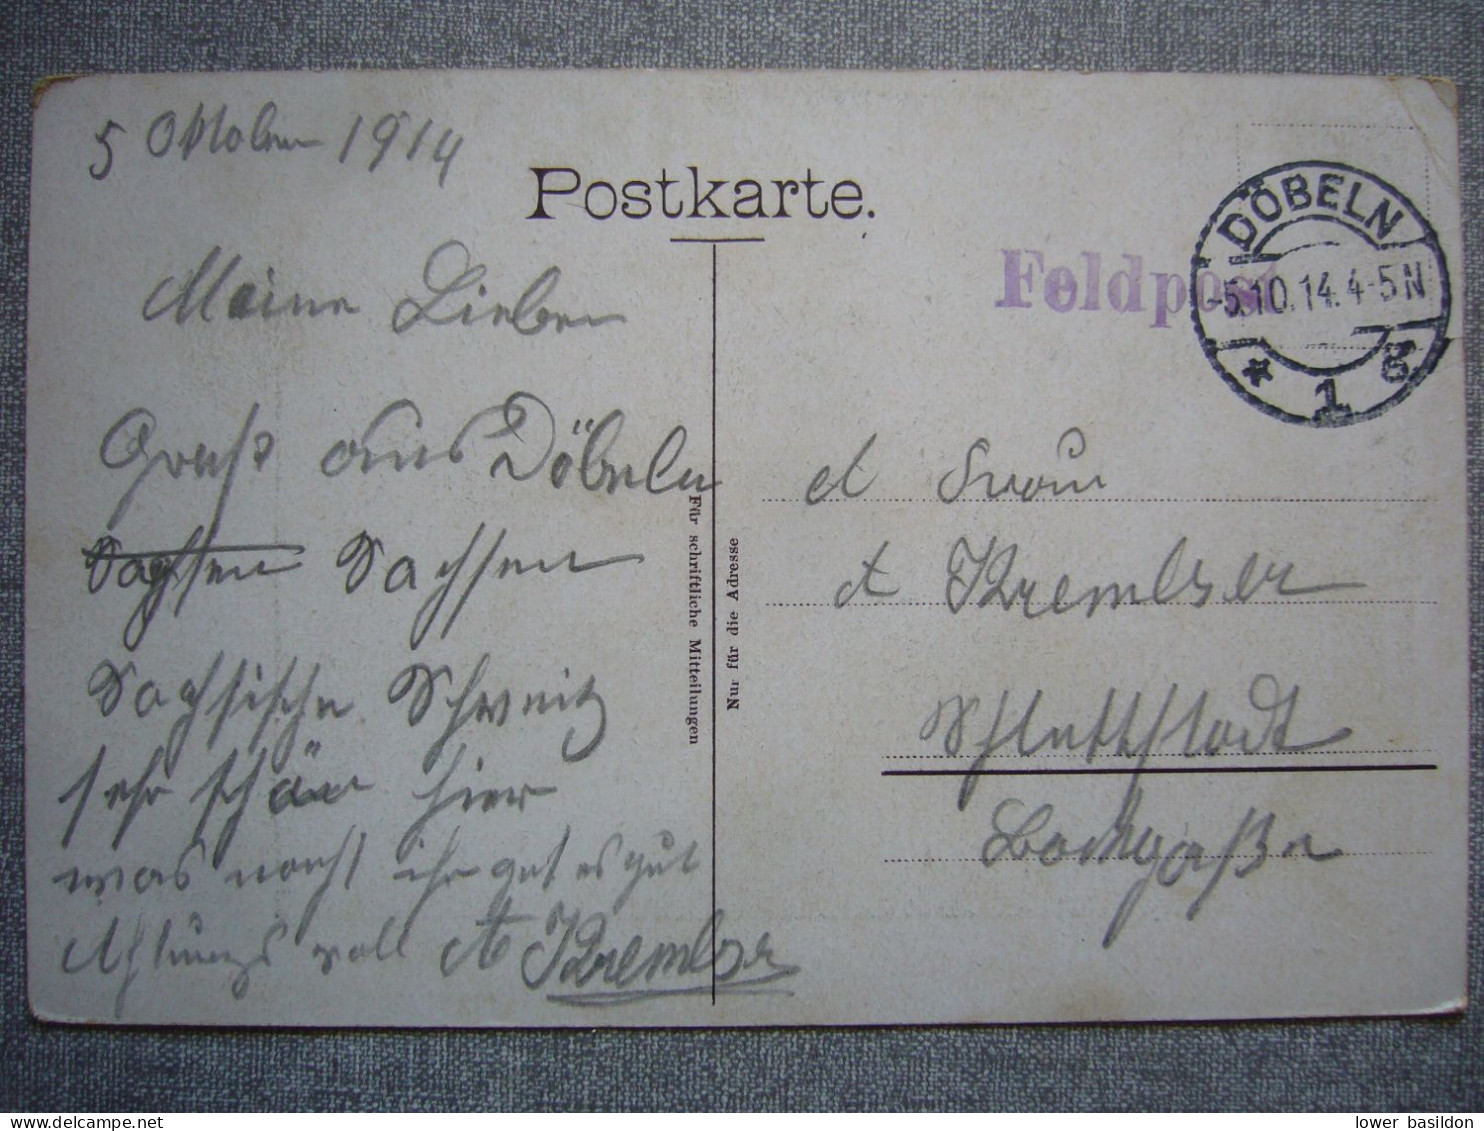 5 Oktober 1914
Postkarte.
Feldpost
DÖBELN
-5.10.14.4-5N
* 1 g
Meine Lieben
Gruß aus Döbeln
Sachsen Sachsen
Sachsische Schweitz
sehr schön hier
was macht ihr get es gut
Achtungs voll A Kremlzer
Für schriftliche Mitteilungen
Nur für die Adresse
A Frau
A Kremlzer
Schlettstadt
Bockgaße
lower basildon